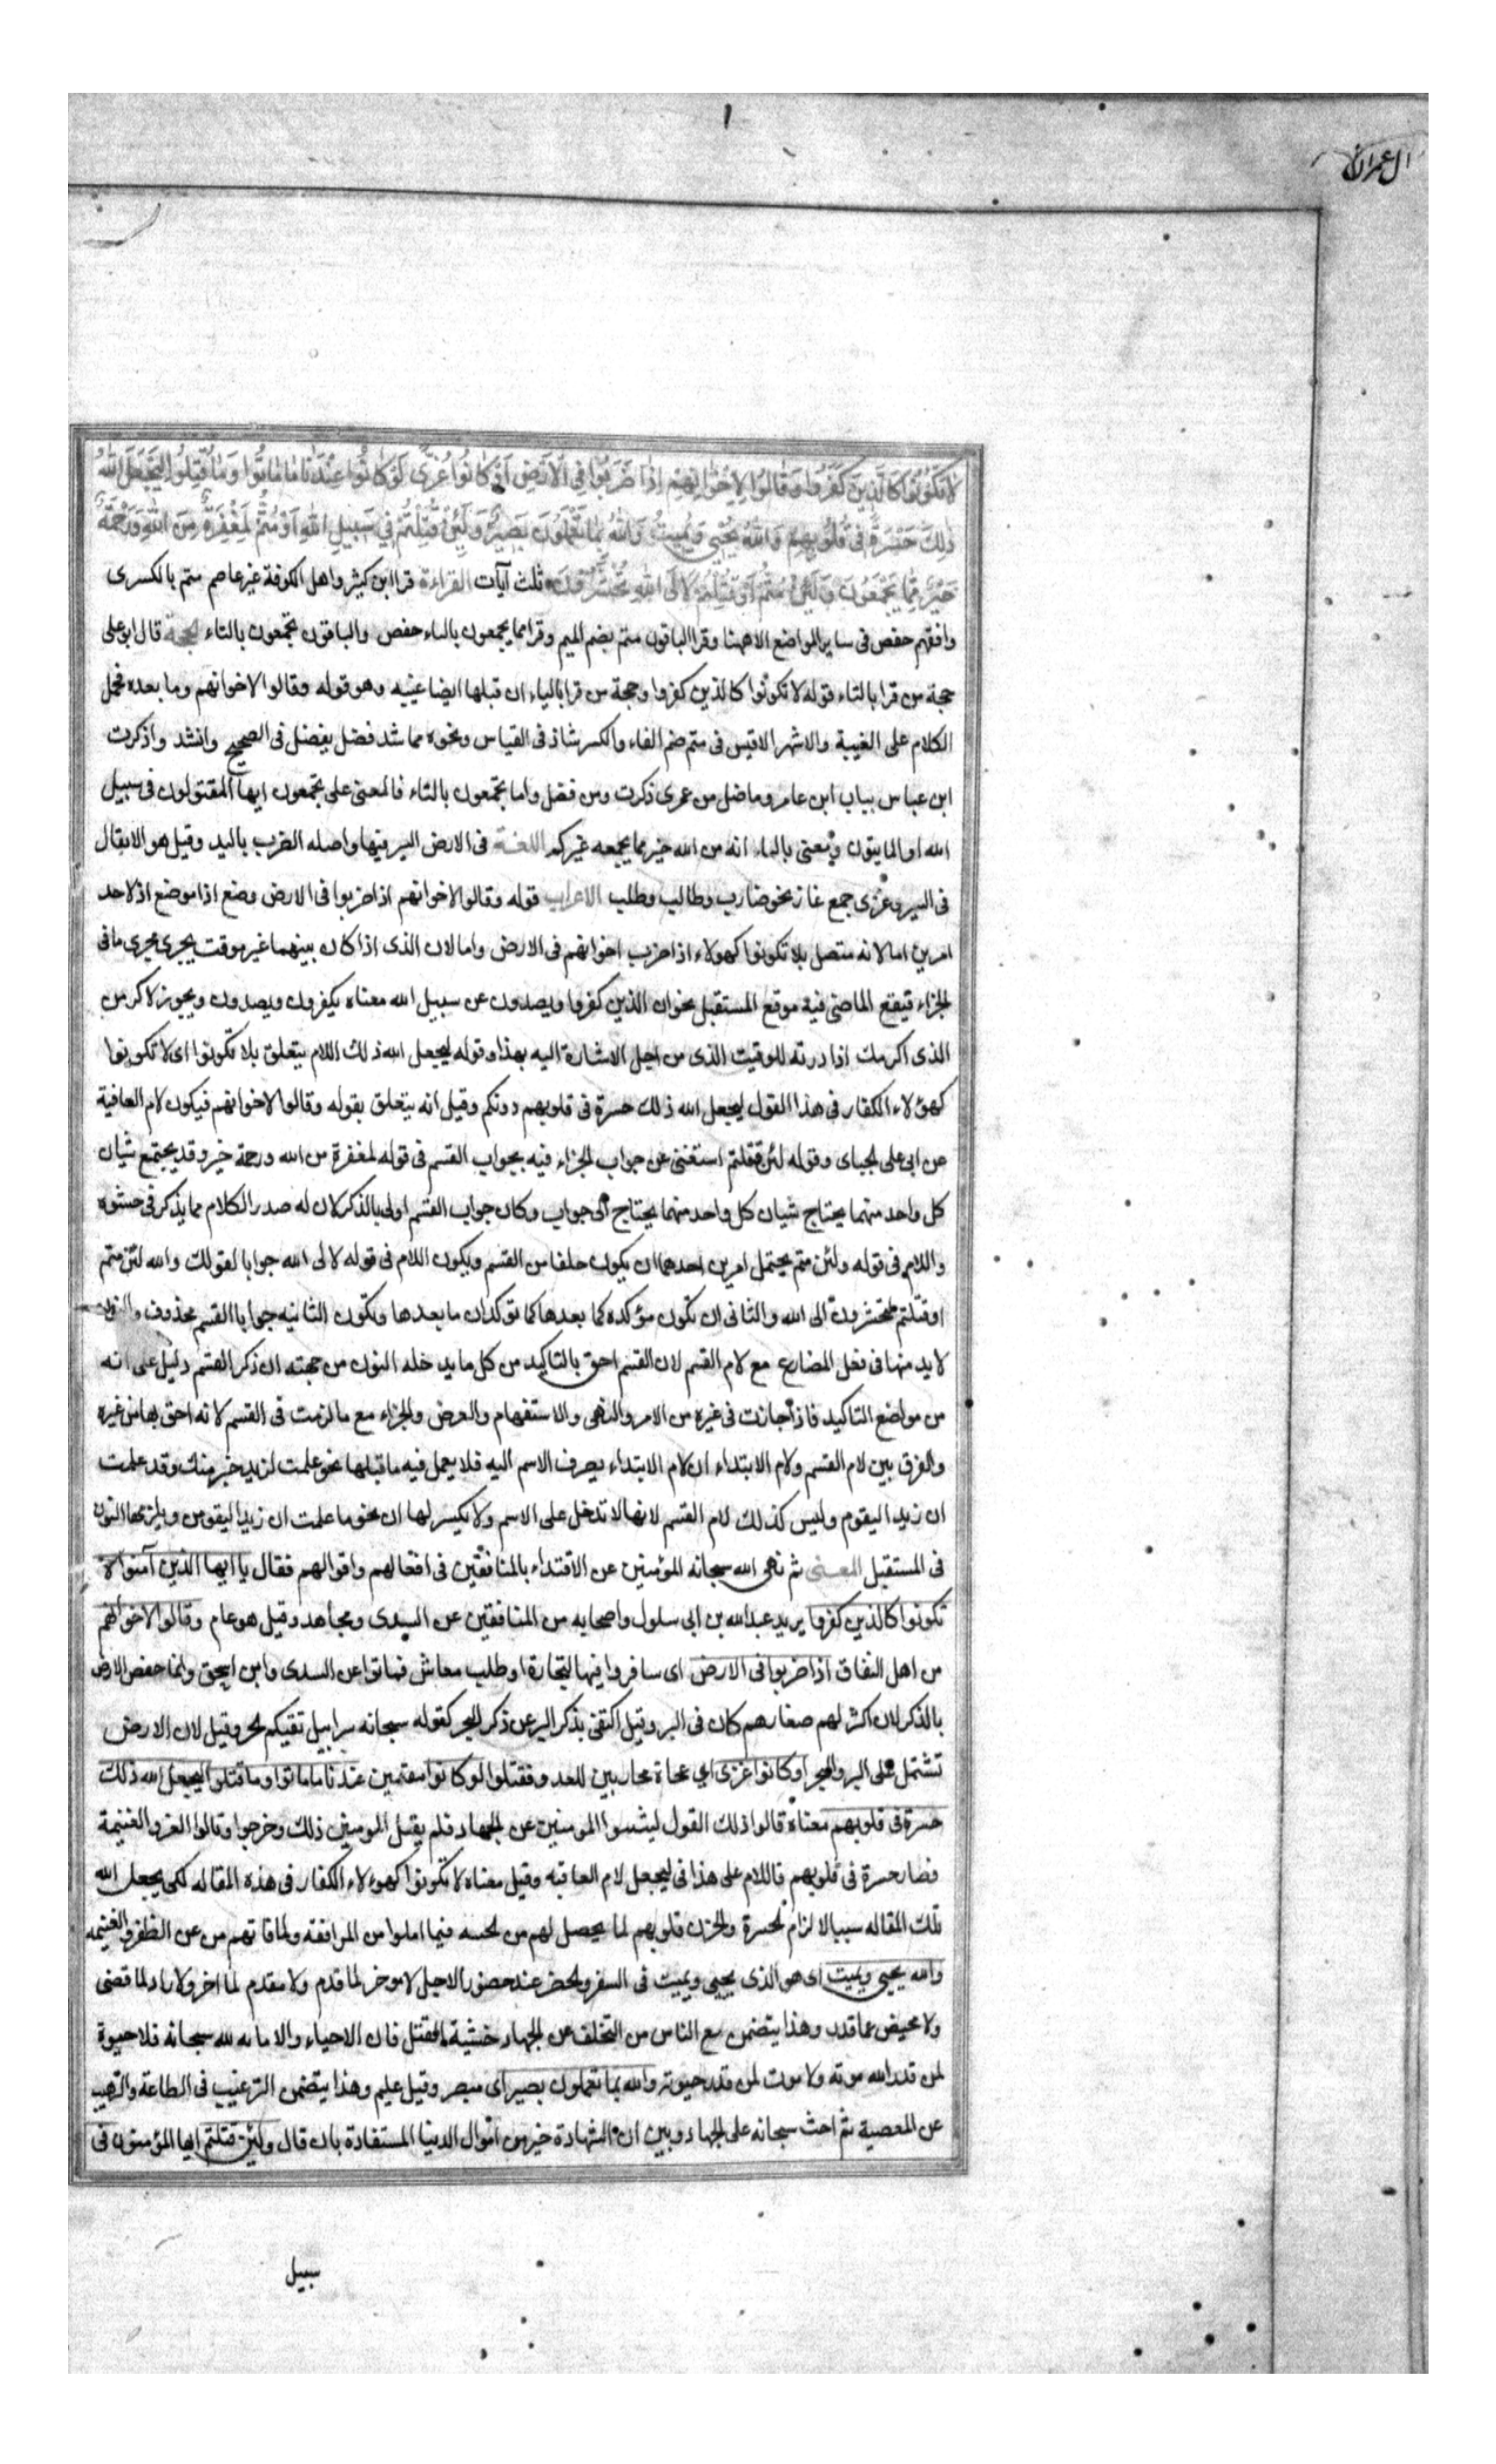 ال عمران
١
لَا تَكُونُوا كَالَّذِينَ كَفَرُوا وَقَالُوا لِإِخْوَانِهِمْ إِذَا ضَرَبُوا فِي الْأَرْضِ أَوْ كَانُوا غُزًّى لَوْ كَانُوا عِنْدَنَا مَا مَاتُوا وَمَا قُتِلُوا لِيَجْعَلَ اللهُ
ذَلِكَ حَسْرَةً فِي قُلُوبِهِمْ وَاللهُ يُحْيِي وَيُمِيتُ وَاللهُ بِمَا تَعْمَلُونَ بَصِيرٌ وَلَئِنْ قُتِلْتُمْ فِي سَبِيلِ اللهِ أَوْ مُتُّمْ لَمَغْفِرَةٌ مِنَ اللهِ وَرَحْمَةٌ
خَيْرٌ مِمَّا يَجْمَعُونَ وَلَئِنْ مُتُّمْ أَوْ قُتِلْتُمْ لَإِلَى اللهِ تُحْشَرُونَ ثلث آيات القراءة قرا ابن كثير واهل الكوفة غير عاصم متم بالكسرى
وافقهم حفص فى ساير المواضع الا ههنا وقرا الباقون متم بضم الميم وقرا مما يجمعون بالياء حفص والباقون تجمعون بالتاء الحجة قال ابو على
حجة من قرا بالتاء قوله لا تكونوا كالذين كفروا وحجة من قرا بالياء ان قبلها ايضا غيبه وهو قوله وقالوا لاخوانهم وما بعده فحمل
الكلام على الغيبة والاشهر الاقيس فى متم ضم الفاء والكسر شاذ فى القياس ونحوه مما شد فضل يفضل فى الصحيح وانشد واذكرت
ابن عباس بباب ابن عامر وماضل من عمرى ذكرت ومن فضل واما تجمعون بالتاء فالمعنى على تجمعون ايها المقتولون فى سبيل
الله او المايتون وبمعنى بالياء انه من الله خير مما يجمعه غيركم اللغة فى الارض السير فيها واصله الضرب باليد وقيل هو الايقال
فى السير وغزى جمع غاز نحو ضارب وطالب وطلب الاعراب قوله وقالوا لاخوانهم اذا ضربوا فى الارض وضع اذا موضع اذ لاحد
امرين اما لانه متصل بلا تكونوا كهولاء اذا ضرب اخوانهم فى الارض واما لان الذى اذا كان بينهما غير موقت يجرى مجرى ما فى
الجزاء فيقع الماضى فيه موقع المستقبل نحو ان الذين كفروا ويصدون عن سبيل الله معناه يكفرون ويصدون ويجوز لاكرمن
الذى اكرمك اذا درته للوقيت الذى من اجل الاشارة اليه بهذا وقوله ليجعل الله ذلك اللام يتعلق بلا تكونوا اى لا تكونوا
كهؤلاء الكفار فى هذا القول ليجعل الله ذلك حسرة فى قلوبهم دونكم وقيل انه يتعلق بقوله وقالوا لاخوانهم فيكون لام العافية
عن ابى على الجباى وقوله لئن قتلتم استغنى عن جواب الجزاء فيه بجواب القسم فى قوله لمغفرة من الله ورحمة خير وقد يجتمع شيان
كل واحد منهما يحتاج شيان كل واحد منهما يحتاج الى جواب وكان جواب القسم اولى بالذكر لان له صدر الكلام مما يذكر فى حشوه
واللام فى قوله ولئن متم يحتمل امرين احدهما ان يكون حلفا من القسم ويكون اللام فى قوله لالى الله جوابا لقولك والله لئن متم
او قتلتم لتحشرون الى الله والثانى ان تكون مؤكده كما بعدها كما توكد ان ما بعدها وتكون الثانيه جوابا القسم محذوف والنون
لا بد منها فى فعل المضارع مع لام القسم لان القسم احق بالتاكيد من كل ما يدخله النون من جهته ان ذكر القسم دليل على انه
من مواضع التاكيد فاذا جازت فى غيره من الامر والنهى والاستفهام والعرض والجزاء مع ما لزمت فى القسم لانه احق بها من غيره
والفرق بين لام القسم ولام الابتداء ان لام الابتداء يصرف الاسم اليه فلا يعمل فيه ما قبلها نحو علمت لزيد خير منك وقد علمت
ان زيد اليقوم وليس كذلك لام القسم لانها لا تدخل على الاسم ولا يكسر لها ان نحو ما علمت ان زيدا ليقومن ويلزمها النون
فى المستقبل المعنى ثم نهى الله سبحانه المؤمنين عن الاقتداء بالمنافقين فى افعالهم واقوالهم فقال يا ايها الذين آمنوا لا
تكونوا كالذين كفروا يريد عبدالله بن ابى سلول واصحابه من المنافقين عن السدى ومجاهد وقيل هو عام وقالوا لاخوانهم
من اهل النفاق اذا ضربوا فى الارض اى سافروا فيها لتجارة او طلب معاش فماتوا عن السدى وابن اسحق وانما حفص الارض
بالذكر لان اكثر لهم صفارهم كان فى البر وقيل اكتفى بذكر البر عن ذكر البحر كقوله سبحانه سرابيل تقيكم الحر وقيل لان الارض
تشتمل على البر والبحر او كانوا غزى اى عجاة محاربين للعدو فقتلوا لو كانوا مقيمين عندنا ما ماتوا وما قتلوا ليجعل الله ذلك
حسرة فى قلوبهم معناه قالوا ذلك القول ليثبسوا المومنين عن الجهاد فلم يقبل المومنين ذلك وخرجوا وقالوا الغز والغنيمة
فصار حسرة فى قلوبهم فاللام على هذا فى ليجعل لام العاقبه وقيل معناه لا تكونوا كهوءلاء الكفار فى هذه المقاله لكى يجعل الله
تلك المقاله سببا لالزام الحسرة والحزن قلوبهم لما يحصل لهم من الحسه فيما املوا من المرافقه ولما فاتهم من عن الظفر والغنيمه
والله يحيى ويميت اى هو الذى يحيى ويميت فى السفر والحضر عند حضور الاجل لا موخر لما قدم ولا مقدم لما اخر ولا راد لما قضى
ولا محيض عما قدر وهذا يتضمن مع الناس من التخلف عن الجهاد خشية القتل فان الاحياء والاماىه لله سبحانه فلا حيوة
لمن قدر الله موته ولا موت لمن قدر حيوته والله بما تعملون بصير اى مبصر وقيل عليم وهذا يتضمن الترغيب فى الطاعة والترهيب
عن المعصية ثم احث سبحانه على الجهاد وبين ان الشهادة خير من اموال الدنيا المستفادة بان قال ولئن قتلتم ايها المؤمنون فى
سبيل